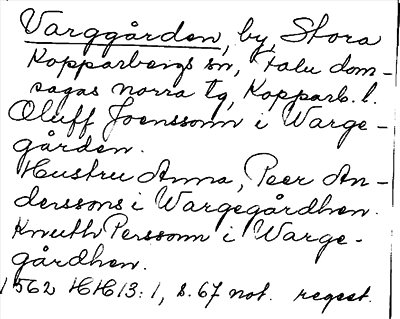 Varggården, by, Stora
Kopparbergs sn, Falu dom-
sagas norra tg, Kopparb. l.
Oluff Joenssonn i Warge-
gården.
Hustru Anna, Peer An-
derssons i Wargegårdhen.
Knuth Perssonn i Warge-
gårdhen.
1562 HH 13:1, s. 67 not. regest.